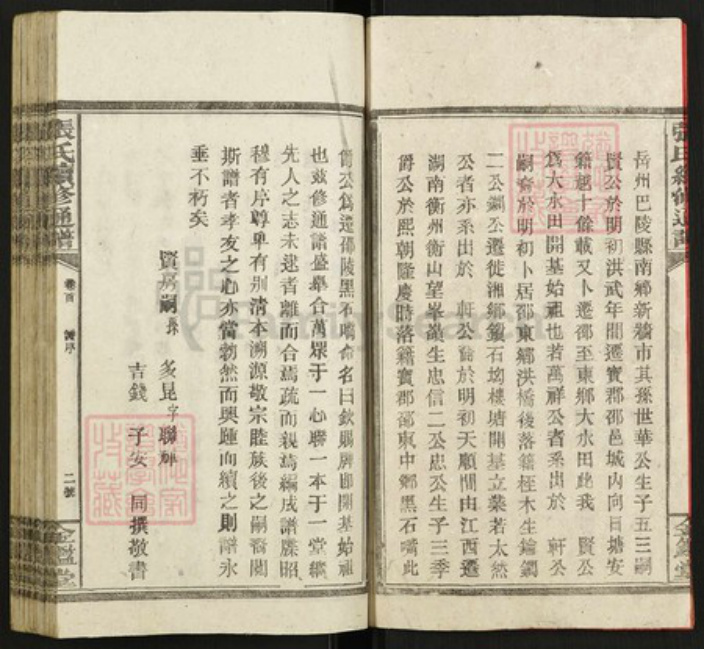 岳州巴陵縣南鄉新牆市其孫世華公生子五三嗣
賢公於明初洪武年間遷寶郡邵邑城內向日塘安
籍越十餘載又卜遷邵至東鄉大水田此我 賢公
爲大水田開基始祖也若萬祥公者系出於 軒公
嗣裔於明初卜居邵東鄉洪橋後落籍桎木生鑰鐧
二公鐧公遷徙湘鄉鑼石坳樓塘開基立業若太然
公者亦系出於 軒公裔於明初天順間由江西遷
湖南衡州衡山望峯嶺生忠信二公忠公生子三季
爵公於熙朝隆慶時落籍寶郡邵東中鄉黑石嘴此
爵公爲遷邵陵黑石嘴命名曰欽賜牌即開基始祖
也茲修通譜盛舉合萬眾于一心聯一本于一堂繼
先人之志未逮者離而合焉疏而親焉編成譜牒昭
穆有序尊卑有別清本溯源敬宗睦族後之嗣裔閱
斯譜者孝友之心亦當勃然而興踵而續之則譜永
垂不朽矣
賢房嗣孫 多昆字聯輝
吉錢 子安 同撰敬書
張氏續修通譜
卷首
二號
金鑑堂
張氏續修通譜
金鑑堂